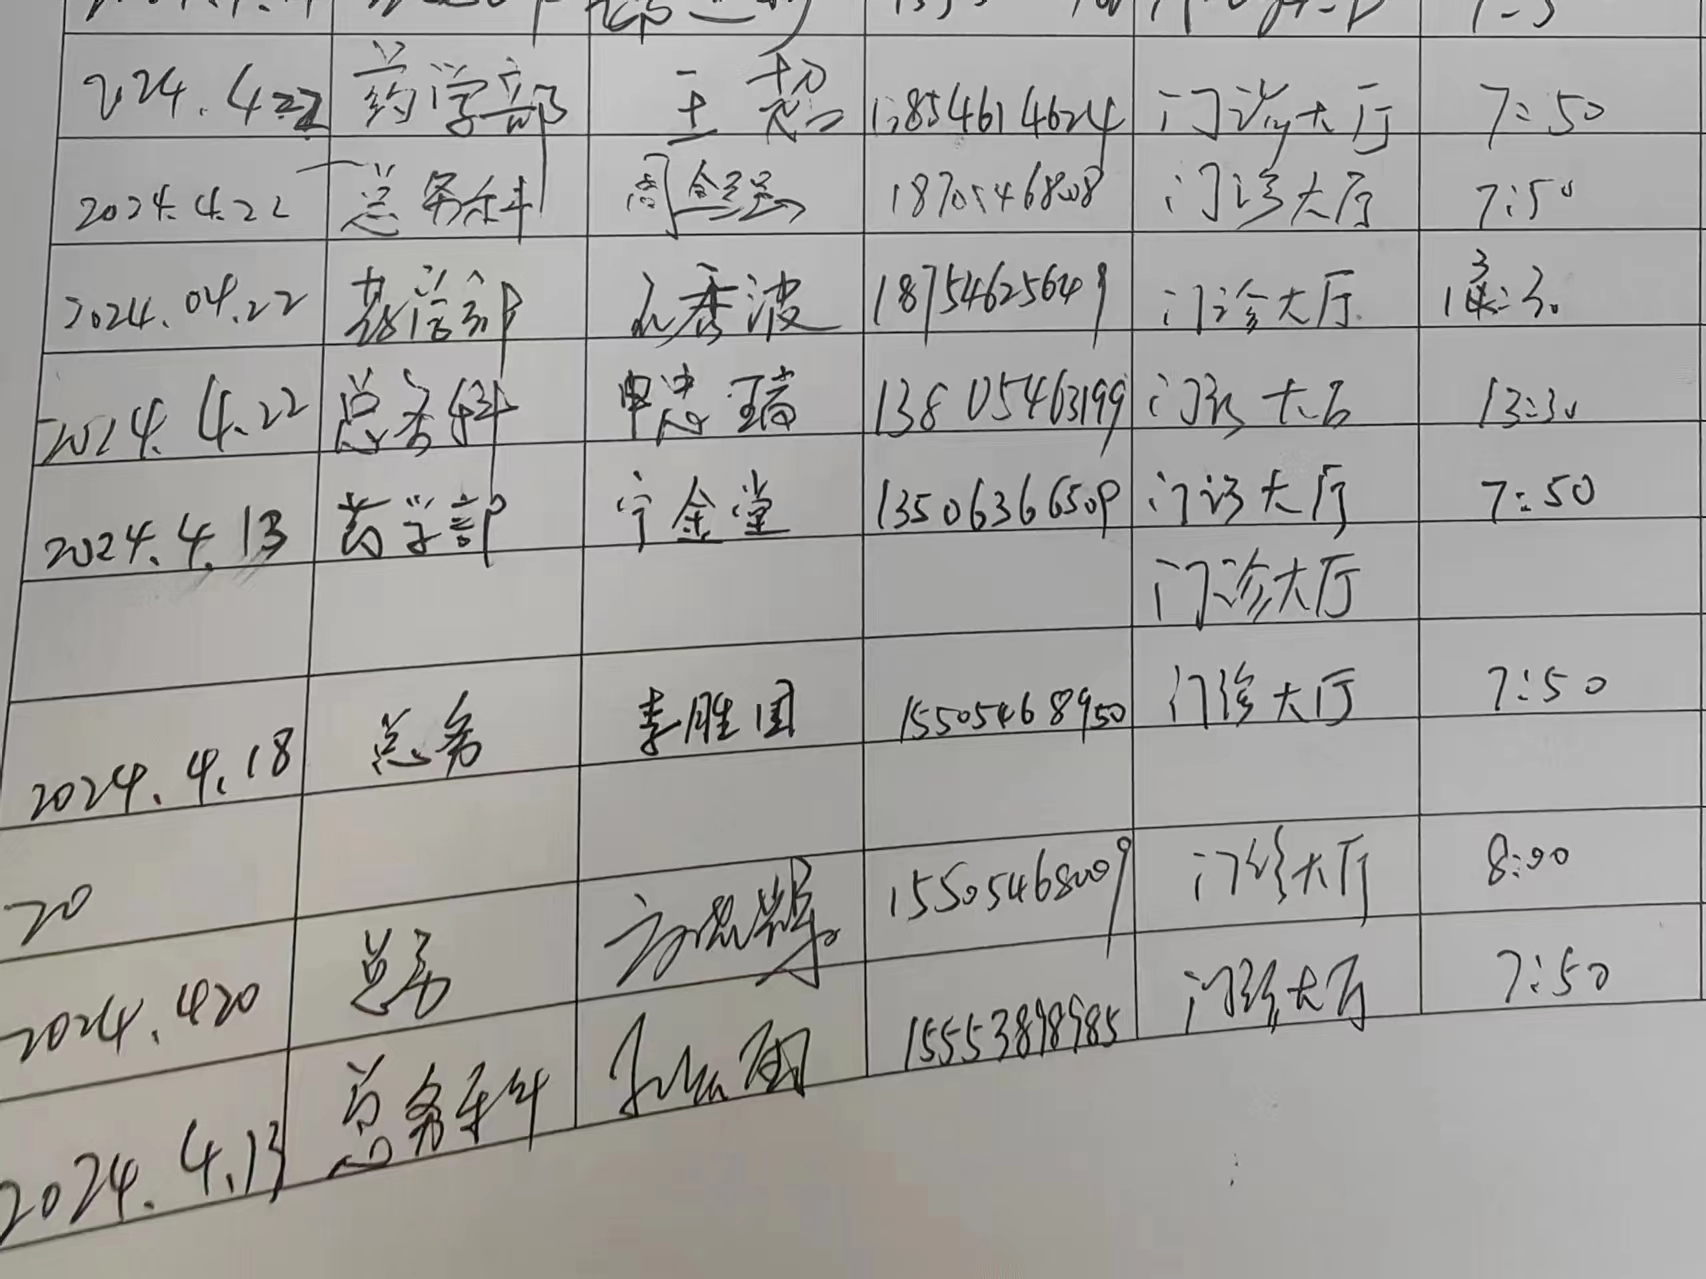 2024.4.22 药学部 王超 1854614624 门诊大厅 7:50
2024.4.22 总务科 周金强 18705468208 门诊大厅 7:50
2024.04.22 药学部 秀波 18754625649 门诊大厅 13:30
2024.4.22 总务科 申忠瑞 13805463199 门诊大厅 13:30
2024.4.13 药学部 宁金堂 13506366509 门诊大厅 7:50
门诊大厅
2024.4.18 总务 李胜国 15505468950 门诊大厅 7:50
20
2024.4.20 总务 15505468009 门诊大厅 8:00
2024.4.13 总务科 15553898985 门诊大厅 7:50